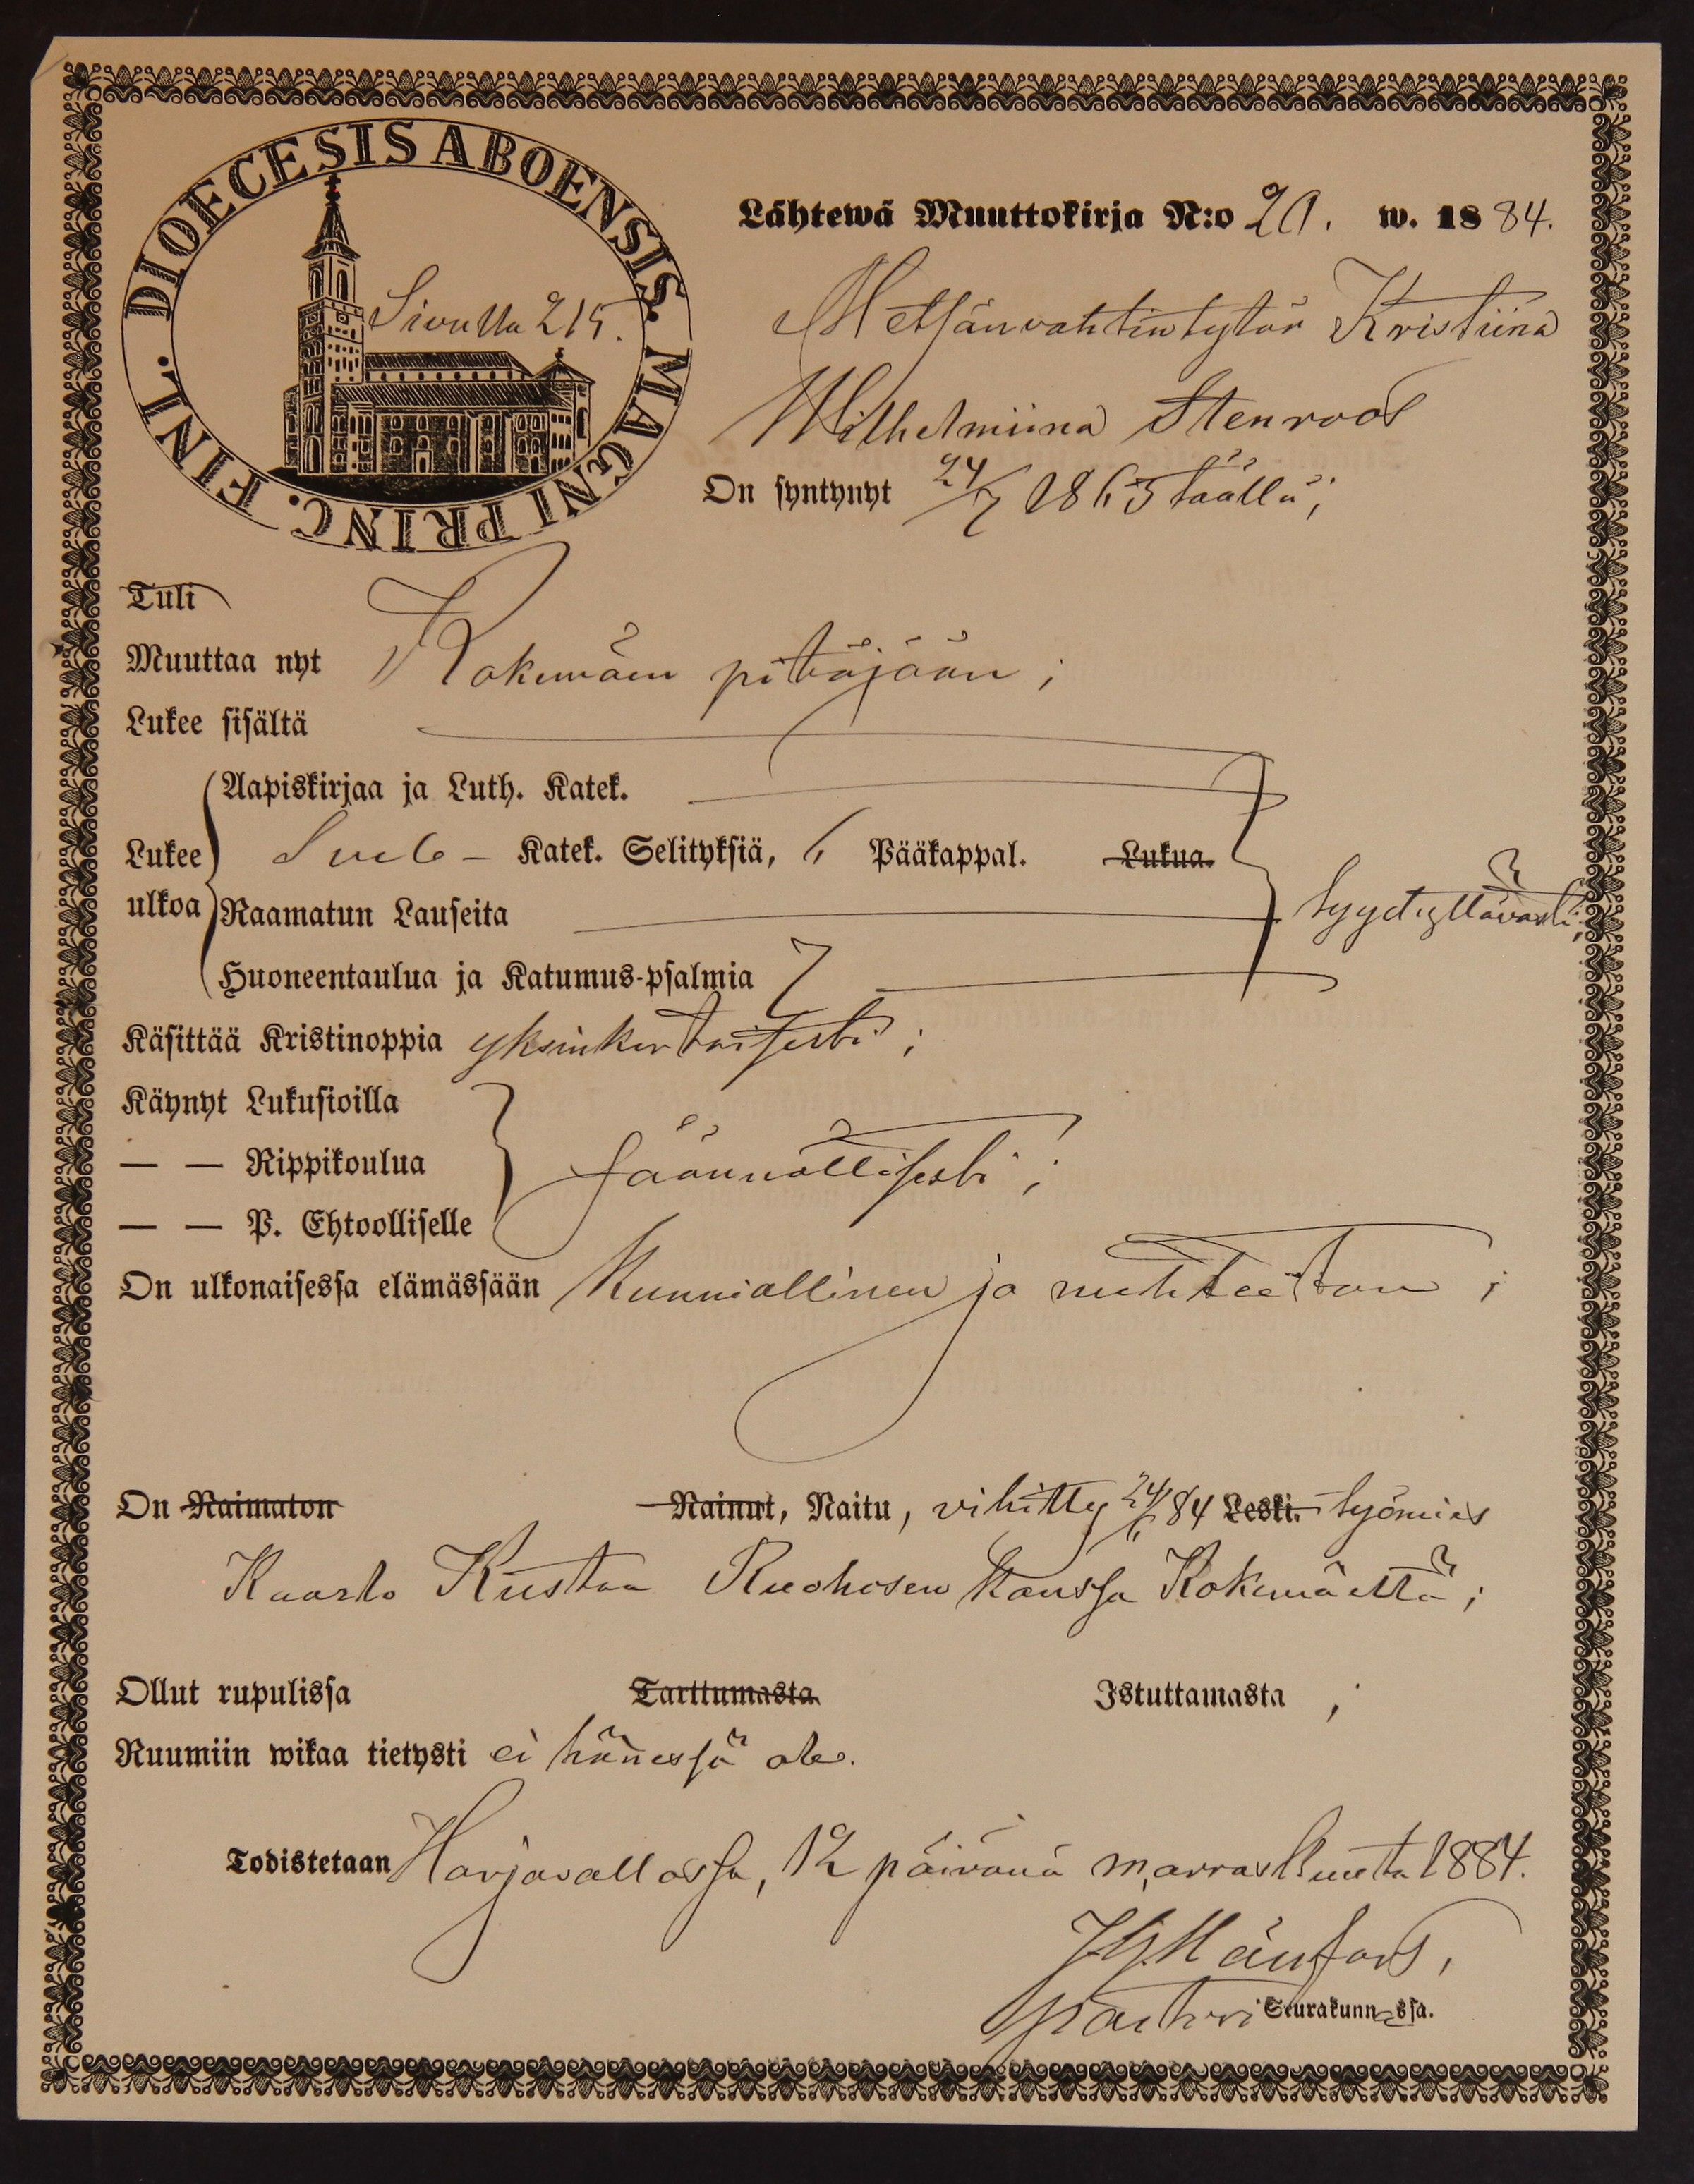 DIOECESIS ABOENSIS. MAGNI PRINC. FINL.
Sivulla 215.
Lähtewä Muuttokirja N:o 20. w. 1884.
Metsänvahtintytär Kristiina
Wilhelmiina Stenroos
On syntynyt 24/7 1865 täällä;
Tuli
Muuttaa nyt Kokemäen pitäjään;
Lukee sisältä
Aapiskirjaa ja Luth. Katek.
Lukee ulkoa
Katek. Selityksiä, 6 Pääkappal. Lukua.
Raamatun Lauseita
tyydyttävästi;
Huoneentaulua ja Katumus-psalmia
Käsittää Kristinoppia yksinkertaisesti;
Käynyt Lukusioilla
— — Rippikoulua
säännöllisesti;
— — P. Ehtoolliselle
On ulkonaisessa elämässään kunniallinen ja nuhteeton;
On Naimaton Nainut, Naitu, vihitty 24/6 84 Leski. työmies
Kaarlo Kustaa Ruohosen kanssa Kokemäeltä;
Ollut rupulissa Tarttumasta Istuttamasta;
Ruumiin wikaa tietysti ei hänessä ole.
Todistetaan Harjavallassa, 12 päivänä marraskuuta 1884.
Pastori Seurakunnassa.